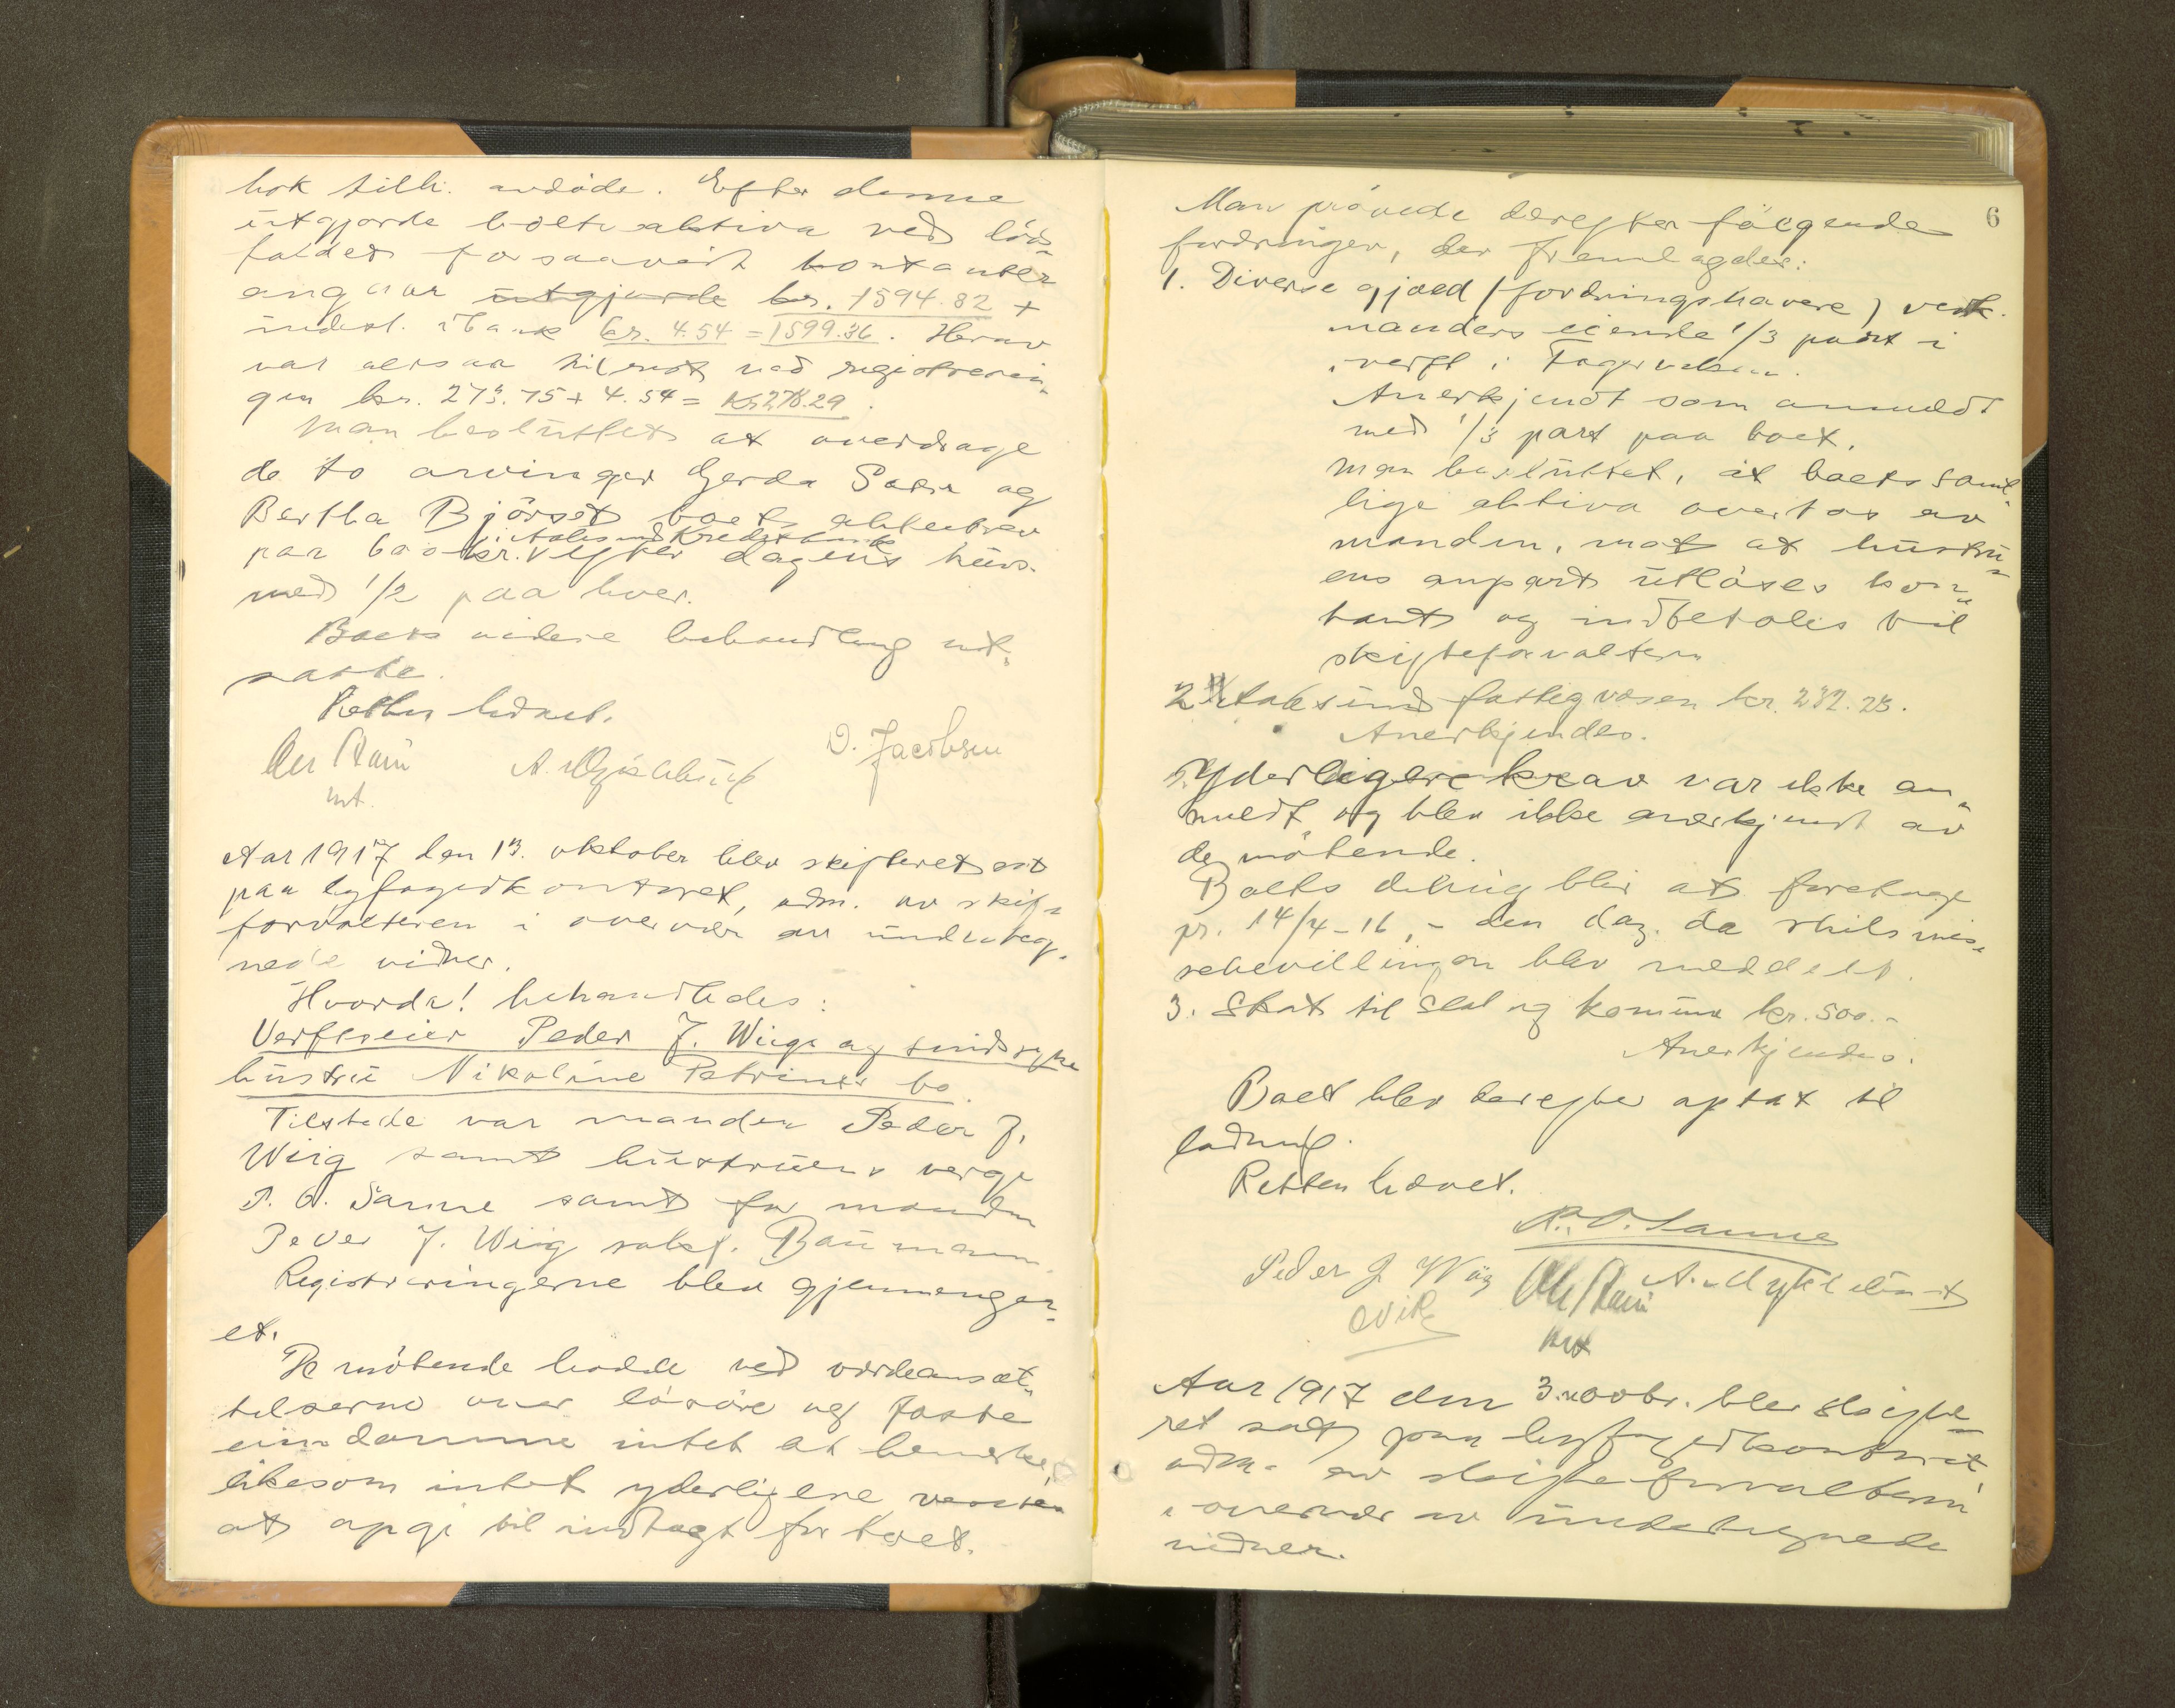 bok tilh. avdøde. Efter denne
utgjorde boets aktiva ved døds-
faldet forsaavidt kontanter
angaar utgjorde kr. 1594.82 +
indest. i bank kr. 4.54 = 1599.36. Herav
var altsaa tilrest ved registrerin-
gen kr. 273.75 + 4.54 = Kr 278.29.
Man besluttet at overdrage
de to arvinger Gerda Sæter og
Bertha Bjørset boets aktiebrev
i Aalesund Kreditbank
paa 600 kr. efter dagens kurs
med 1/2 paa hver.
Boets videre behandling ut-
satte.
Retten hævet.
O. Jacobsen
mt.
Aar 1917 den 13. oktober blev skifteret sat
paa byfogedkontoret, adm. av skifte-
forvalteren i overvær av underteg-
nede vidner.
Hvorda! behandledes:
Verftseier Peder J. Wiigs og sindssyke
hustru Nikoline Petrines bo
Tilstede var manden Peder J.
Wiig samt hustruens verge
P. O. Sanne samt for manden
Peder J. Wiig sakf. Baumann.
Registreringerne blev gjennemgaa-
et.
De møtende hadde ved værdiansæt-
telserne over løsøre og faste
eiendomme intet at bemerke,
likesom intet yderligere
at opgi til indtægt for boet.
6
Man prøvede derefter følgende
fordringer, der fremlagdes:
1. Diverse gjæld (fordringshavere)
mandens eiende 1/3 part i
verft i Fagerviken.
Anerkjendt som anmeldt
med 1/3 part paa boet.
Man besluttet, at boets samt-
lige aktiva overtas av
manden, mot at hustru-
ens anpart utløses kon-
tant og indbetales til
skifteforvalteren
2. Aalesund fattigvæsen kr. 232.23.
Anerkjendes.
Yderligere krav var ikke an-
meldt og blev ikke anerkjendt av
de møtende.
Boets deling blir at foretage
pr. 14/4-16, - den dag, da skilsmis-
sebevillingen blev meddelt.
3. Skat til stat og komune kr. 500.-
Anerkjendes.
Boet blev derefter optat til
lodning.
Retten hævet.
P. O. Sanne
Peder J. Wiig
A. Myklebust
Aar 1917 den 3. novbr. blev skifte-
ret sat paa byfogedkontoret
adm. av skifteforvalteren
i overvær av undertegnede
vidner.